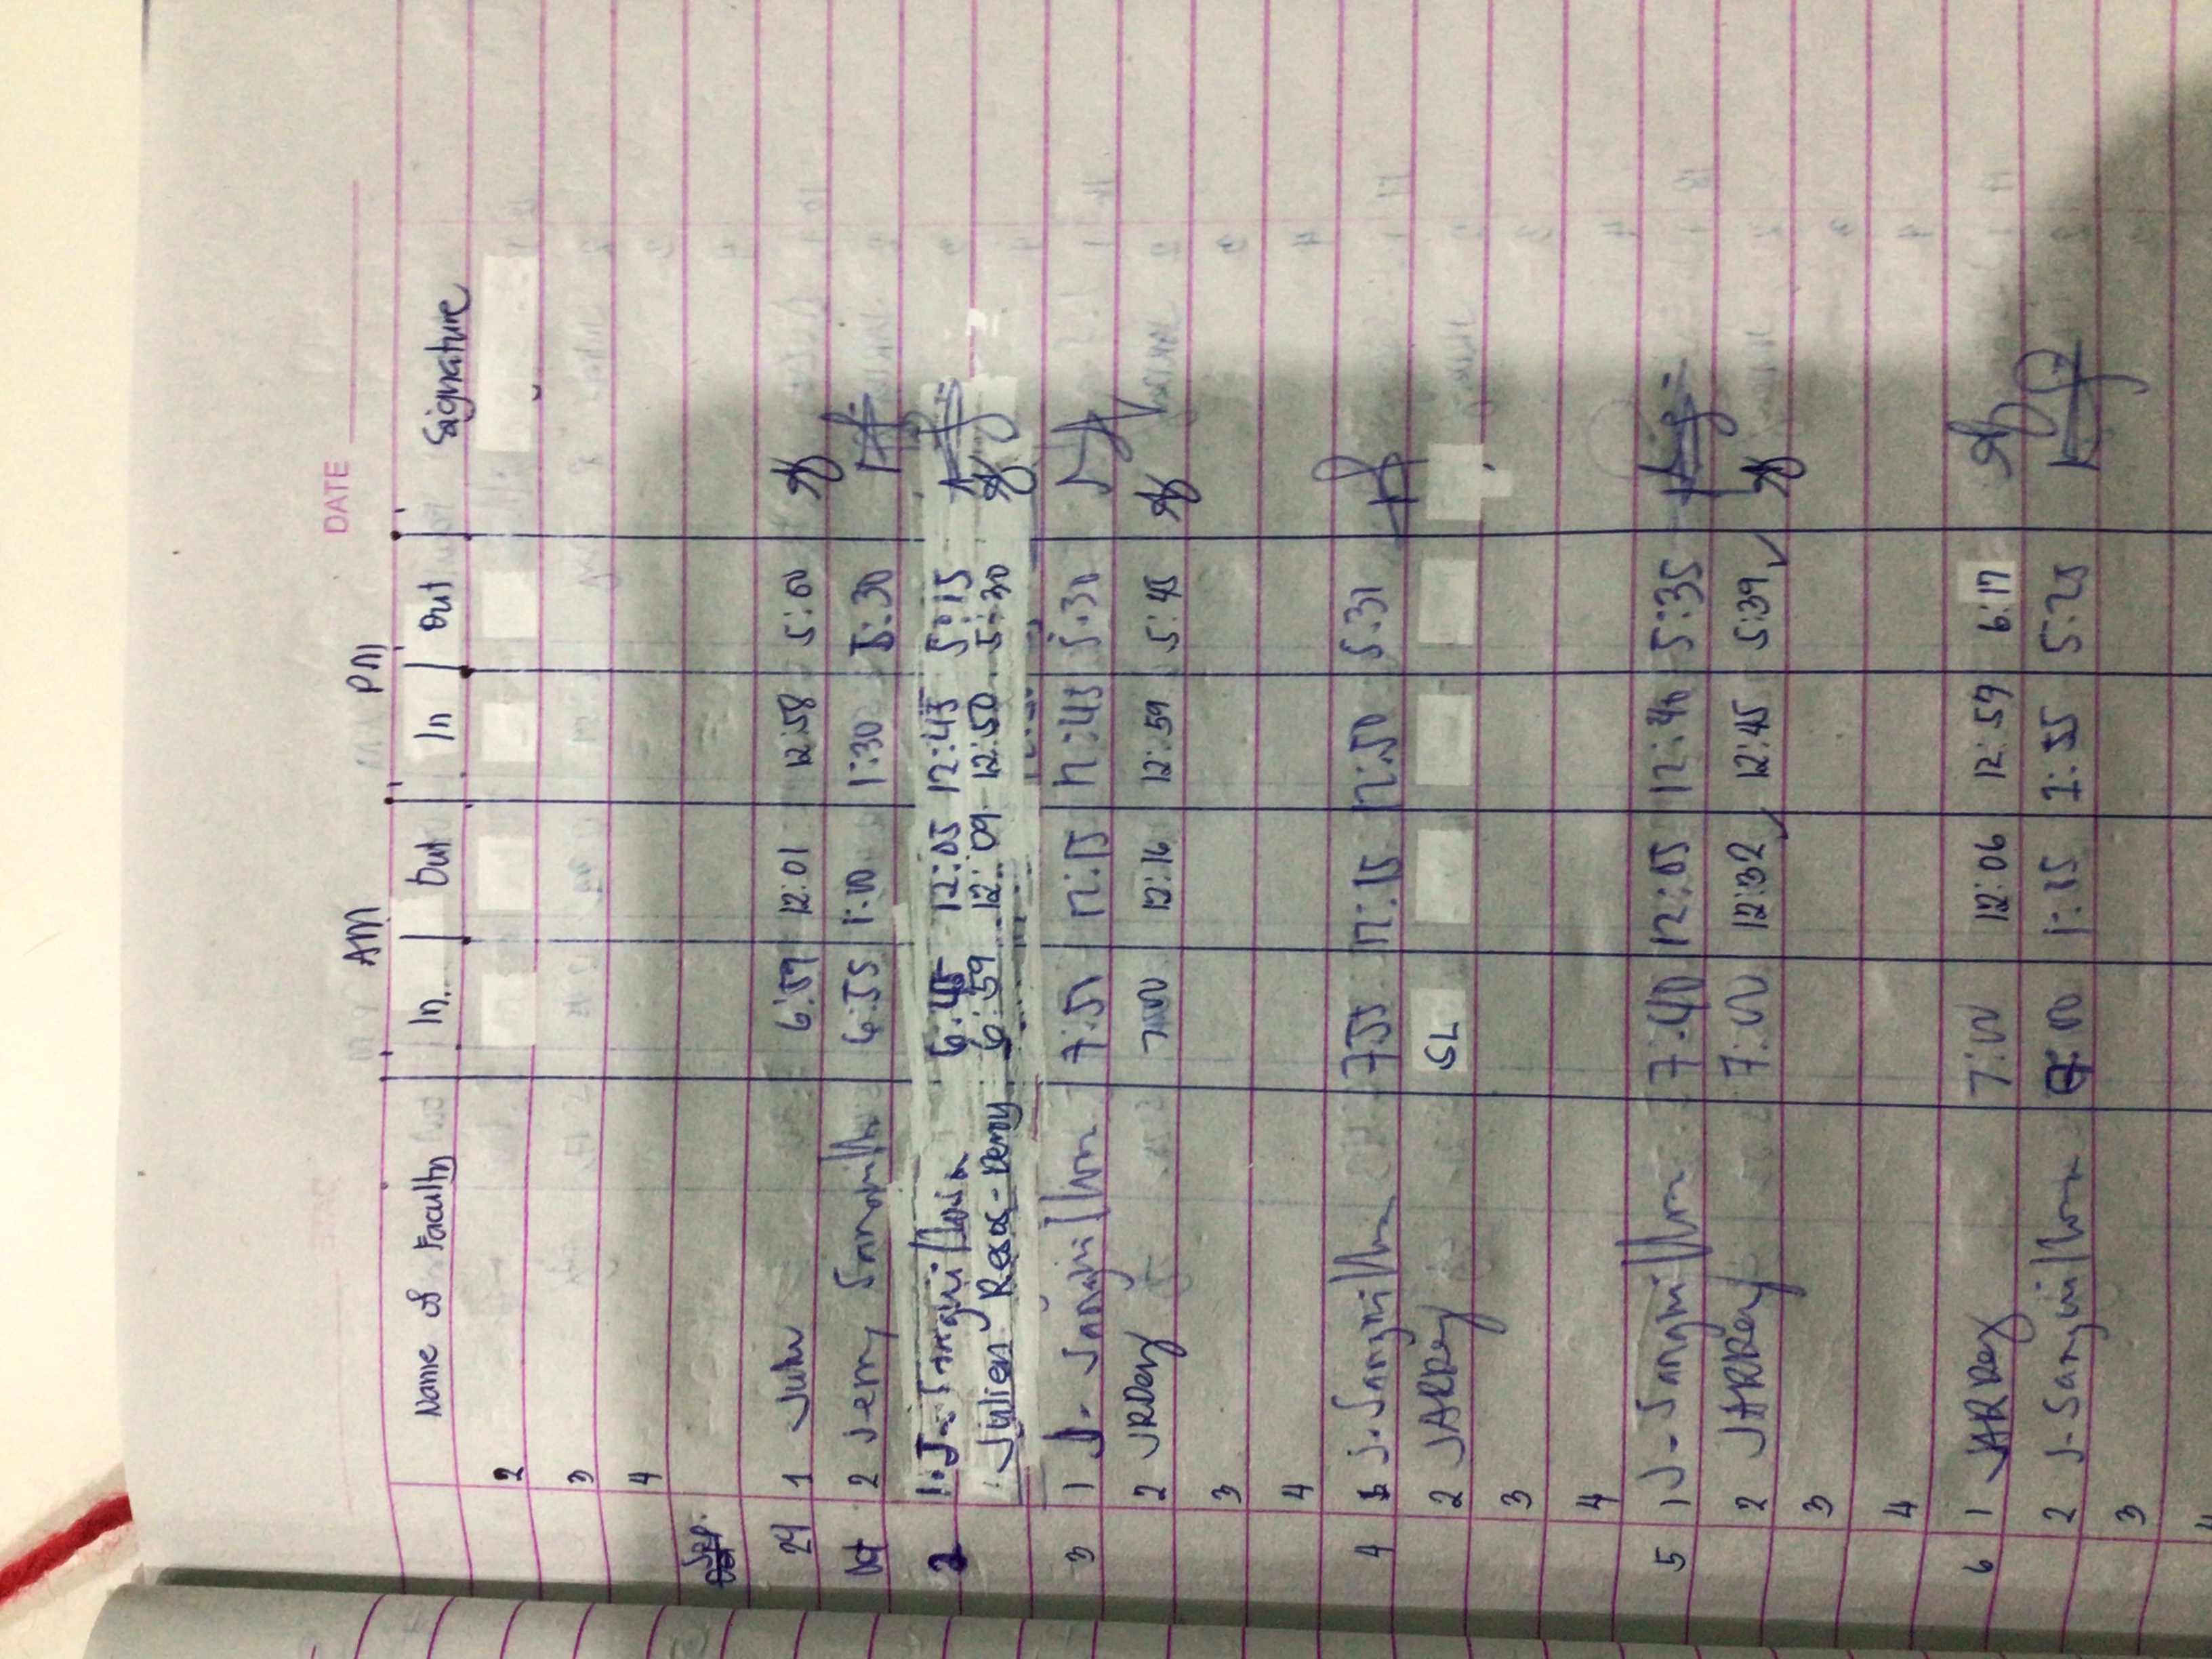 DATE
AM PM
Name of Faculty In Out In Out Signature
2
3
4
Sep.
29 1 Julen 6:59 12:01 12:58 5:00
Oct 2 Jerry Sanquilloin 6:55 1:00 1:30 5:30
2 1. J. Sanquilloin 6:45 12:05 12:45 5:15
Julien Reas-Remy 6:59 12:09 12:50 5:30
3 1 J. Sanquilloin 7:51 12:15 12:45 5:30
2 7:00 12:16 12:59 5:45
3
4
4 J. Sanquilloin 7:55 12:15 12:50 5:31
2 JARRey SL
3
4
5 1 J. Sanquilloin 7:40 12:05 12:40 5:35
2 JARRey 7:00 12:32 12:45 5:39
3
4
6 1 JARRey 7:00 12:06 12:59 6:17
2 J. Sanquilloin 5:25
3
4